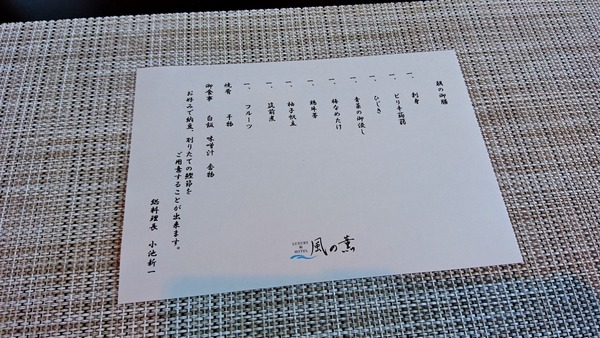 朝の御膳
一、刺身
一、ピリ辛蒟蒻
一、ひじき
一、青菜の御浸し
一、梅なめたけ
一、鶏牛蒡
一、柚子帆立
一、筑前煮
一、フルーツ
焼肴 干物
御食事 白飯 味噌汁 香物
お好みで納豆、削りたての鰹節を
ご用意することが出来ます。
総料理長 小池新一
LUXURY
HOTEL
風の薫